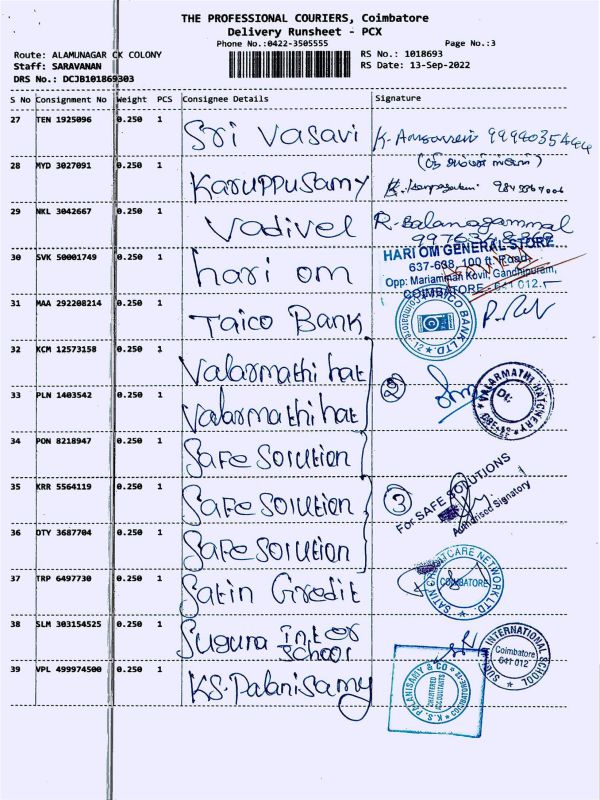 THE PROFESSIONAL COURIERS, Coimbatore
Delivery Runsheet - PCX
Phone No.:0422-3505555 Page No.:3
Route: ALAMUNAGAR CK COLONY RS No.: 1018693
Staff: SARAVANAN RS Date: 13-Sep-2022
DRS No.: DCJB101869303
S No Consignment No Weight PCS Consignee Details Signature
27 TEN 1925096 0.250 1 Sri Vasavi
28 MYD 3027091 0.250 1 Karuppusamy
29 NKL 3042667 0.250 1 Vadivel R. Balanagammal
30 SVK 50001749 0.250 1 hari om
HARI OM GENERAL STORE
637-638, 100 ft. Road,
Opp: Mariamman Kovil, Gandhipuram,
COIMBATORE - 641 012.
31 MAA 292208214 0.250 1 Taico Bank
TAICO BANK LTD.
32 KCM 12573158 0.250 1 Valarmathi hat
33 PLN 1403542 0.250 1 Valarmathi hat
VALARMATHI HATCHERY
34 PON 8218947 0.250 1 Safe Solution
35 KRR 5564119 0.250 1 Safe Solution 3
For SAFE SOLUTIONS
Authorised Signatory
36 OTY 3687704 0.250 1 Safe Solution
37 TRP 6497730 0.250 1 Satin Credit
SATIN CREDITCARE NETWORK LTD.
COIMBATORE
38 SLM 303154525 0.250 1 Suguna inter
school
INTERNATIONAL SCHOOL
Coimbatore
641 012
39 VPL 499974500 0.250 1 KS. Palanisamy
K.S. PALANISAMY & CO
CHARTERED
ACCOUNTANTS